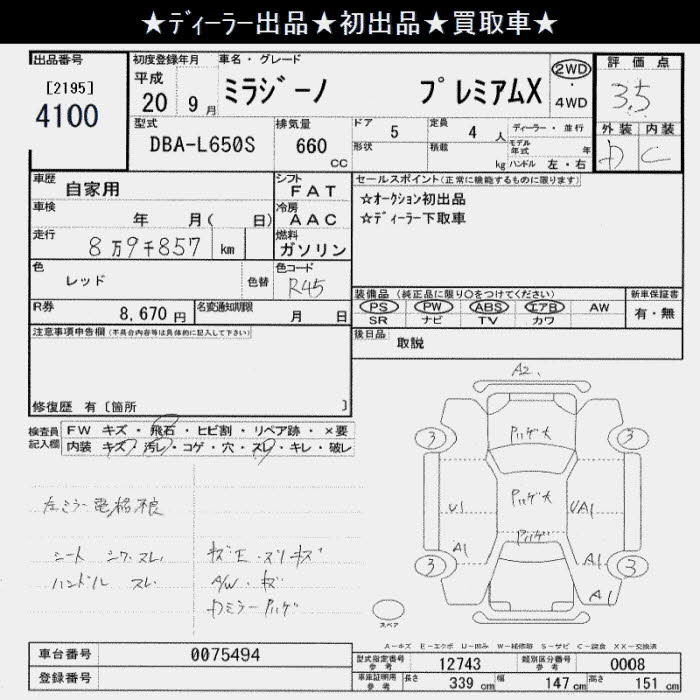 ★ディーラー出品★初出品★買取車★
出品番号
[2195]
4100
初度登録年月
平成
20年 9月
車名・グレード
ミラジーノ プレミアムX
2WD
・
4WD
評価点
3.5
外装 内装
D C
型式
DBA-L650S
排気量
660
CC
ドア 5
形状
定員 4 人
積載 kg
ディーラー・並行
モデル年式 年
ハンドル 左・右
車歴 自家用
シフト
FAT
車検 年 月( 日)
冷房
AAC
走行 8万9千857 km
燃料
ガソリン
色 レッド
色替
色コード
R45
R券 8,670円
名変通知期限 月 日
セールスポイント(正常に機能するものに限ります)
☆オークション初出品
☆ディーラー下取車
装備品(純正品に限り〇をつけてください)
PS PW ABS エアB AW
SR ナビ TV カワ
新車保証書
有・無
後日品 取説
注意事項申告欄(不具合内容等は具体的に記入して下さい)
修復歴 有〔箇所 〕
検査員記入欄
FW キズ・飛石・ヒビ割・リペア跡・×要
内装 キズ・汚レ・コゲ・穴・スレ・キレ・破レ
左ミラー電格不良
シート シワ・スレ
ハンドル スレ
キズE・スリキズ
A/W・キズ
Dミラーハゲ
A2.
3 3
ハゲ大
U1
ハゲ大
UA1
ハゲ
A1 A1
3 3
A1
スペア
A-キズ E-エクボ U-凹み W-補修跡 S-サビ C-腐食 XX-交換済
車台番号 0075494
登録番号
型式指定番号
参考
12743
類別区分番号
参考
0008
車庫証明用
参考
長さ 339 cm 幅 147 cm 高さ 151 cm